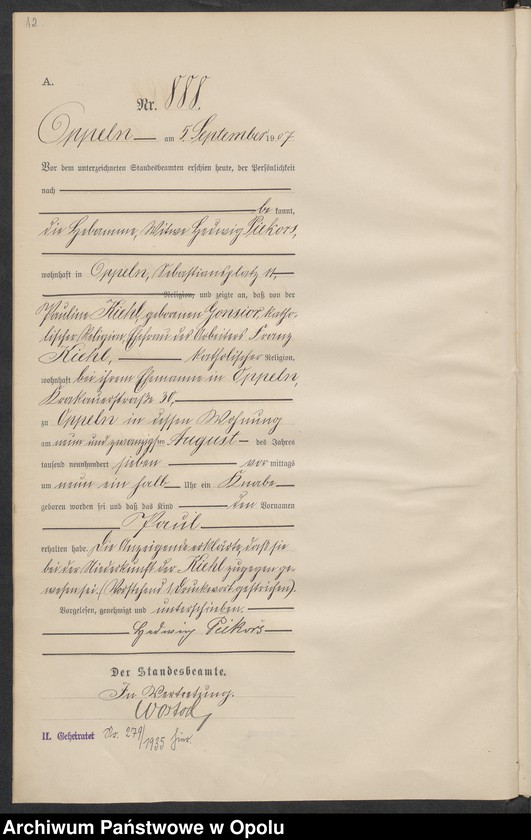 12
A.
Nr. 888.
Oppeln am 5. September 1907.
Vor dem unterzeichneten Standesbeamten erschien heute, der Persönlichkeit
nach
be kannt,
die Hebamme, Witwe Hedwig Piekors,
wohnhaft in Oppeln, Sebastiansplatz 11,
Religion, und zeigte an, daß von der
Paulin Kiehl, geborenen Gonsior, katho-
lischer Religion, Ehefrau des Arbeiters Franz
Kiehl, katholischer Religion,
wohnhaft bei ihrem Ehemanne in Oppeln,
Krakauerstraße 30,
zu Oppeln in dessen Wohnung
am neun und zwanzigsten August des Jahres
tausend neunhundert sieben vor mittags
um neun ein halb Uhr ein Knabe
geboren worden sei und daß das Kind den Vornamen
Paul
erhalten habe. Die Anzeigende erklärte, daß sie
bei der Niederkunft der Kiehl zugegen ge-
wesen sei. (Vorstehend 1 Druckwort gestrichen).
Vorgelesen, genehmigt und unterschrieben.
Hedwig Piekors
Der Standesbeamte.
In Vertretung.
II. Geheiratet Nr. 279/1935 hier.
Archiwum Państwowe w Opolu